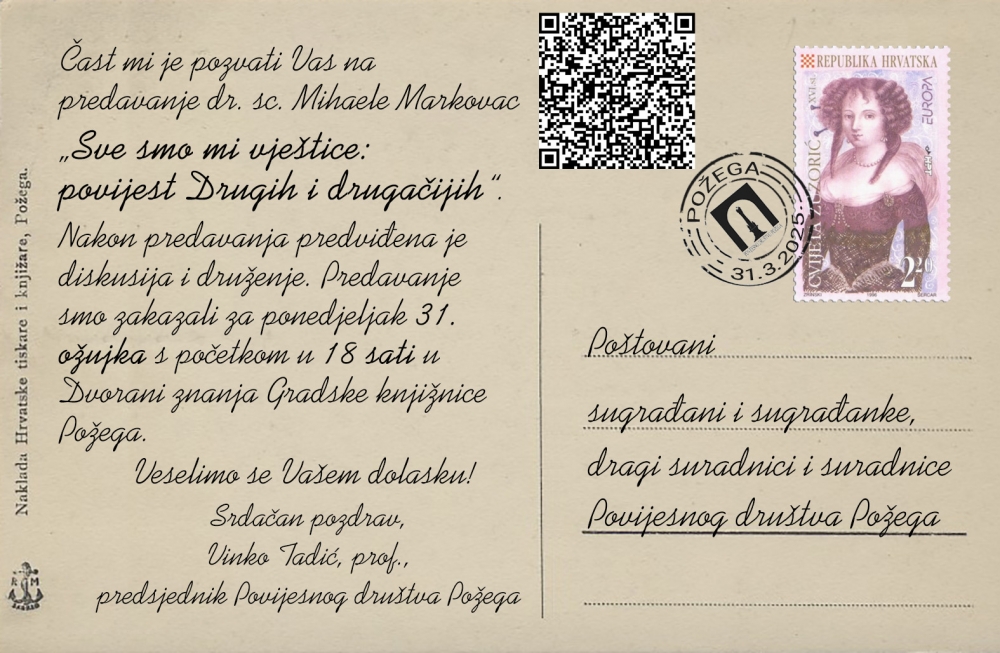 Čast mi je pozvati Vas na
predavanje dr. sc. Mihaele Markovac
„Sve smo mi vještice:
povijest Drugih i drugačijih“.
Nakon predavanja predviđena je
diskusija i druženje. Predavanje
smo zakazali za ponedjeljak 31.
ožujka s početkom u 18 sati u
Dvorani znanja Gradske knjižnice
Požega.
Veselimo se Vašem dolasku!
Srdačan pozdrav,
Vinko Tadić, prof.,
predsjednik Povijesnog društva Požega
Naklada Hrvatske tiskare i knjižare, Požega.
R M
POŽEGA
31.3.2025.
REPUBLIKA HRVATSKA
XVI. st.
EUROPA
CVIJETA ZUZORIĆ
2 20
1996
Poštovani
sugrađani i sugrađanke,
dragi suradnici i suradnice
Povijesnog društva Požega